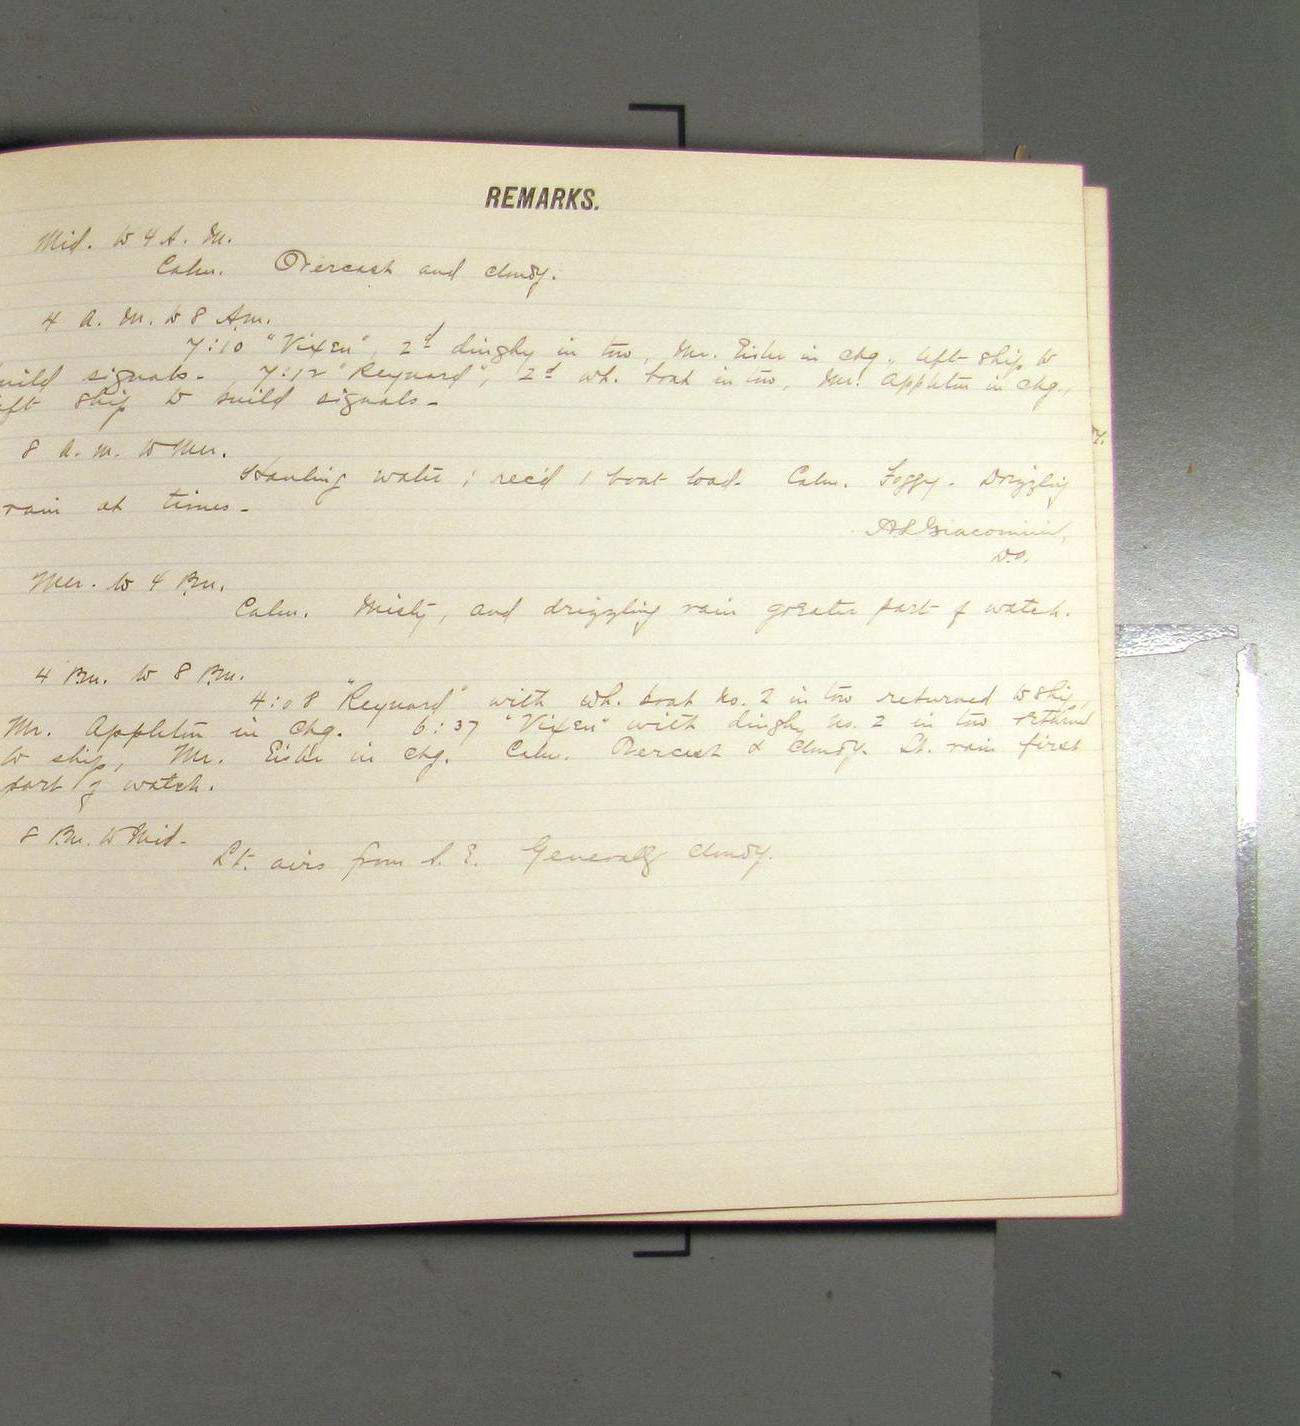 REMARKS.
Mid. to 4 A. M.
Calm. Overcast and cloudy.
4 A. M. to 8 Am.
7:10 "Vixen", 2d dinghy in tow, Mr. Eisler in chg., left ship to
build signals. 7:12 "Reynard", 2d wh. boat in tow, Mr. Appleton in chg.,
left ship to build signals.
8 A. m. to Mer.
Hauling water; rec'd 1 boat load. Calm. Foggy. Drizzling
rain at times.
A L Giacomini,
D.O.
Mer. to 4 Pm.
Calm. Misty, and drizzling rain greater part of watch.
4 Pm. to 8 Pm.
4:08 "Reynard" with wh. boat No. 2 in tow returned to ship,
Mr. Appleton in chg. 6:37 "Vixen" with dinghy No. 2 in tow returned
to ship, Mr. Eisler in chg. Calm. Overcast & cloudy. Lt. rain first
part of watch.
8 Pm. to Mid.
Lt. airs from S. E. Generally cloudy.